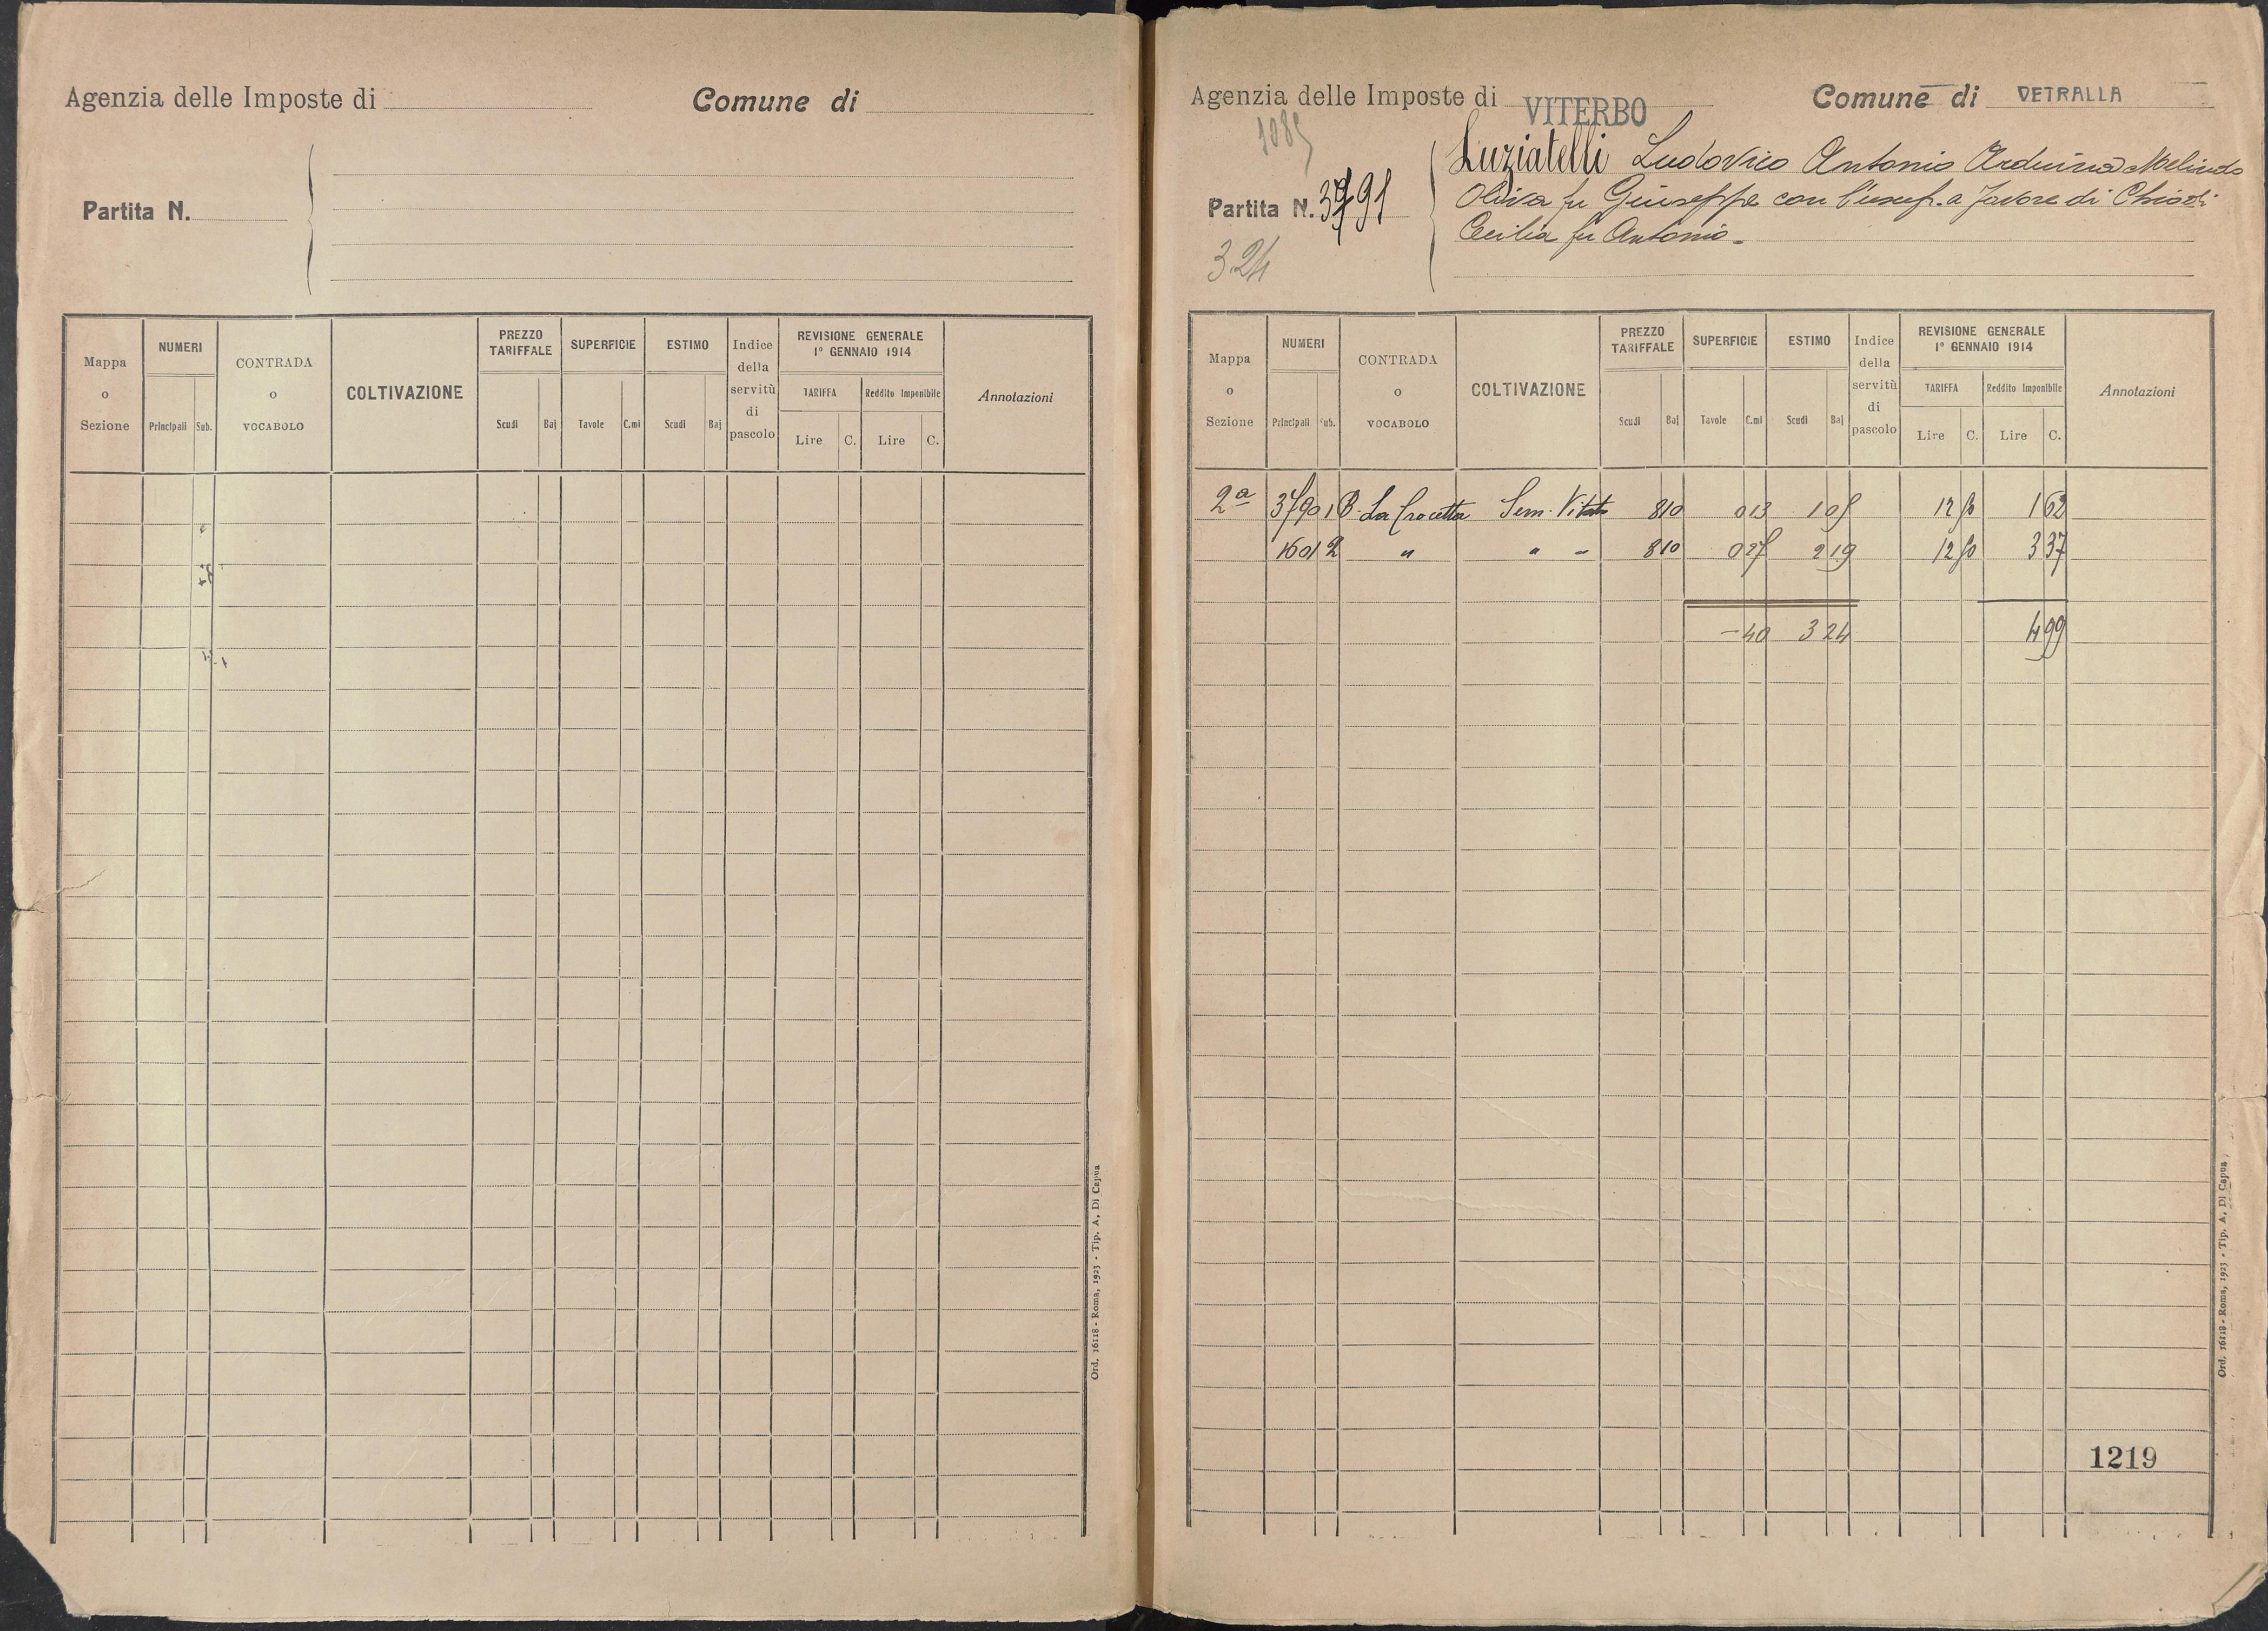 Agenzia delle Imposte di
Comune di
Partita N.
Mappa o Sezione
NUMERI
Principali Sub.
CONTRADA o VOCABOLO
COLTIVAZIONE
PREZZO TARIFFALE
Scudi Baj
SUPERFICIE
Tavole C.mi
ESTIMO
Scudi Baj
Indice della servitù di pascolo
REVISIONE GENERALE
1° GENNAIO 1914
TARIFFA
Lire C.
Reddito Imponibile
Lire C.
Annotazioni
Ord. 16118 - Roma, 1923 - Tip. A. Di Capua
Agenzia delle Imposte di VITERBO
Comune di VETRALLA
Luziatelli Ludovico Antonio Arduina Melindo
Partita N. 3791
Oliva fu Giuseppe con l'usuf. a favore di Chiodi
Cecilia fu Antonio
324
Mappa o Sezione
NUMERI
Principali Sub.
CONTRADA o VOCABOLO
COLTIVAZIONE
PREZZO TARIFFALE
Scudi Baj
SUPERFICIE
Tavole C.mi
ESTIMO
Scudi Baj
Indice della servitù di pascolo
REVISIONE GENERALE
1° GENNAIO 1914
TARIFFA
Lire C.
Reddito Imponibile
Lire C.
Annotazioni
2ª La Crocetta Sem. Vitato 8 10 0 13 1 05 12 50 1 62
1601 2 " " - 8 10 0 27 2 19 12 50 3 37
- 40 3 24 4 99
1219
Ord. 16118 - Roma, 1923 - Tip. A. Di Capua